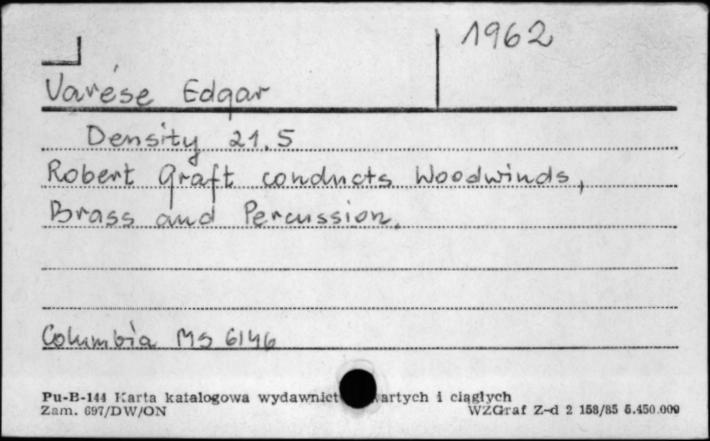 1962
Varése Edgar
Density 21.5
Robert Graft conducts Woodwinds,
Brass and Percussion.
Columbia MS 6146
Pu-B-144 Karta katalogowa wydawnict wartych i ciągłych
Zam. 697/DW/ON WZGraf Z-d 2 158/85 5.450.000